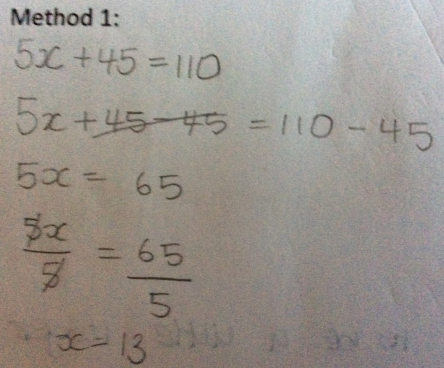 Method 1:
5x + 45 = 110
5x + 45 - 45 = 110 - 45
5x = 65
5x/5 = 65/5
x = 13